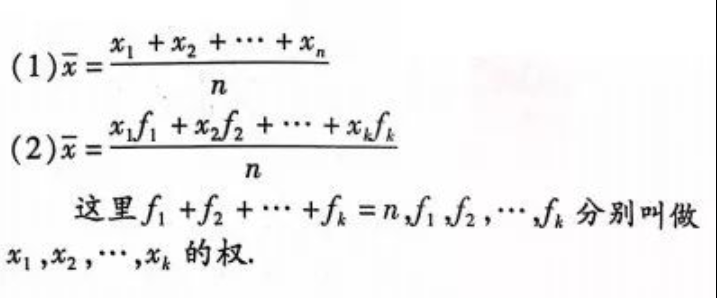 (1) x̄ = (x₁ + x₂ + ⋯ + xₙ) / n
(2) x̄ = (x₁f₁ + x₂f₂ + ⋯ + xₖfₖ) / n
这里 f₁ + f₂ + ⋯ + fₖ = n, f₁, f₂, ⋯, fₖ 分别叫做
x₁, x₂, ⋯, xₖ 的权.